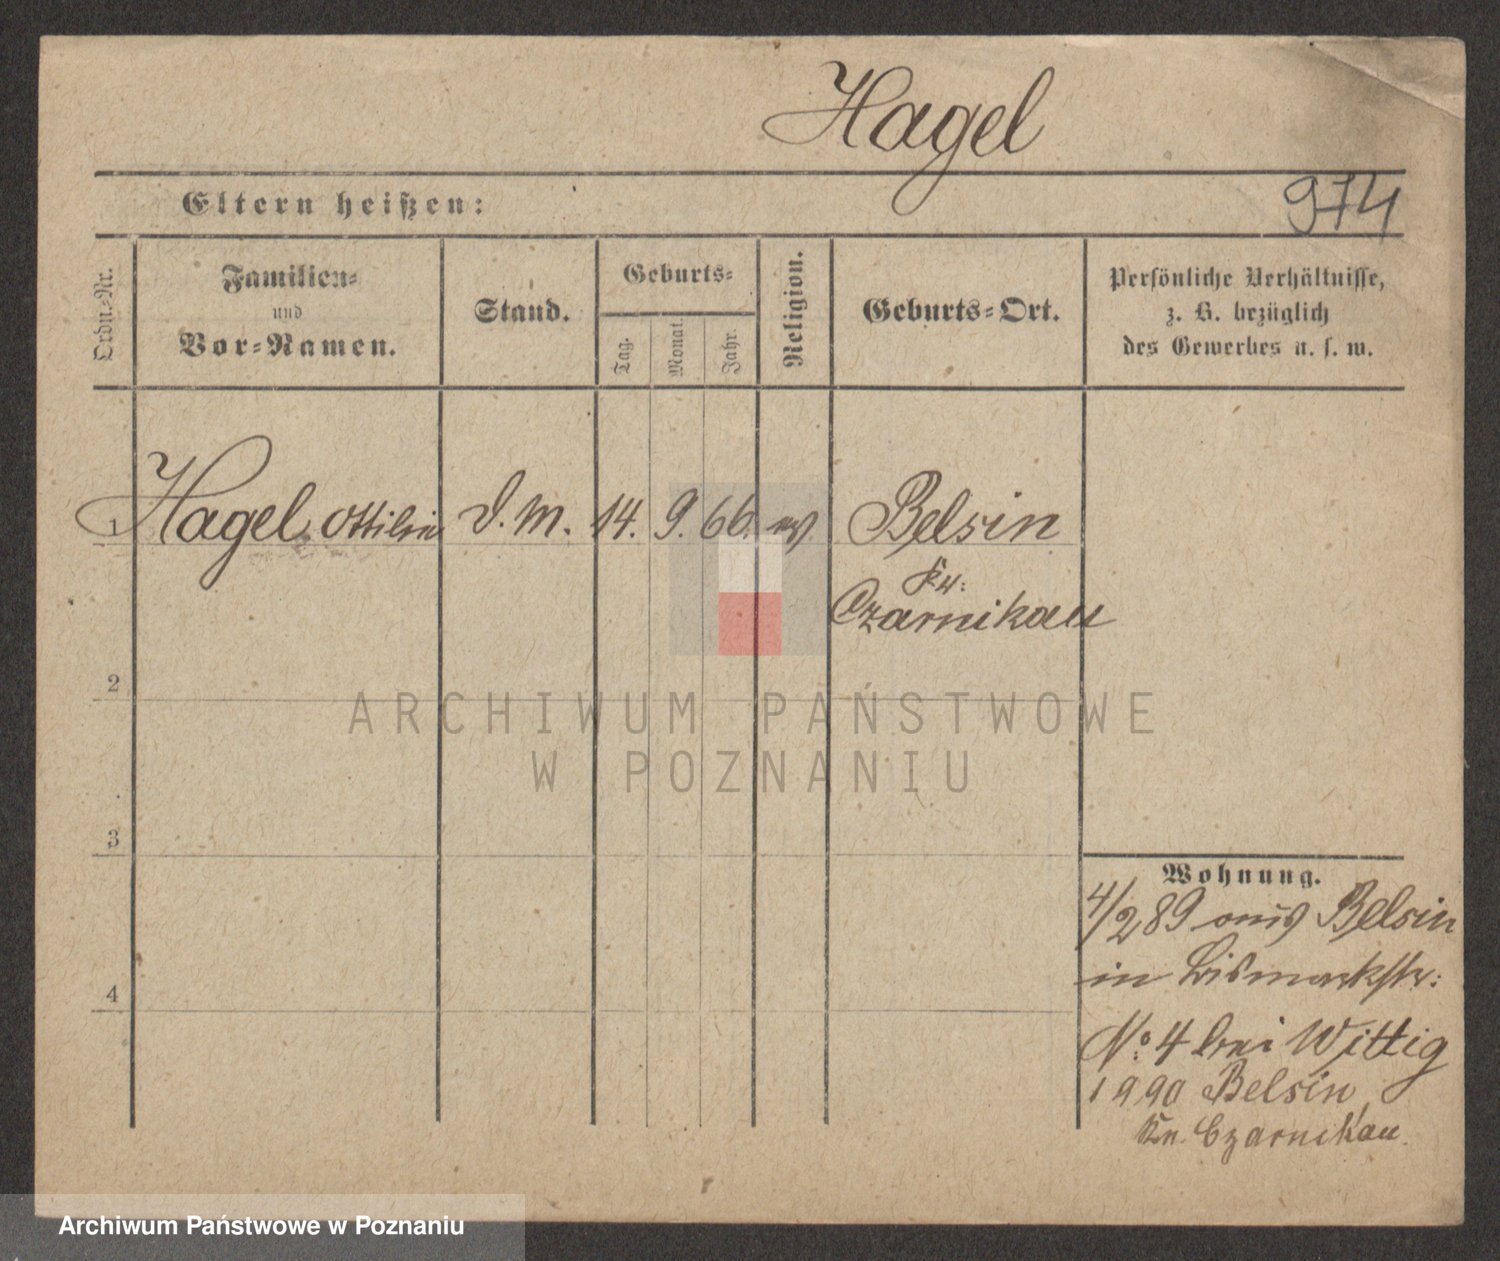 Hagel
974
Eltern heißen:
Ordn.-Nr.
Familien-
und
Vor-Namen.
Stand.
Geburts-
Tag.
Monat.
Jahr.
Religion.
Geburts-Ort.
Persönliche Verhältnisse,
z. B. bezüglich
des Gewerbes u. s. w.
1 Hagel Ottilie D. M. 14. 9. 66. ev Belsin
Kr.
Czarnikau
2
ARCHIWUM PAŃSTWOWE
W POZNANIU
3
Wohnung.
4/2 89 aus Belsin
in Bismarckstr:
4
No. 4 bei Wittig
1 9 90 Belsin,
Kr. Czarnikau.
Archiwum Państwowe w Poznaniu